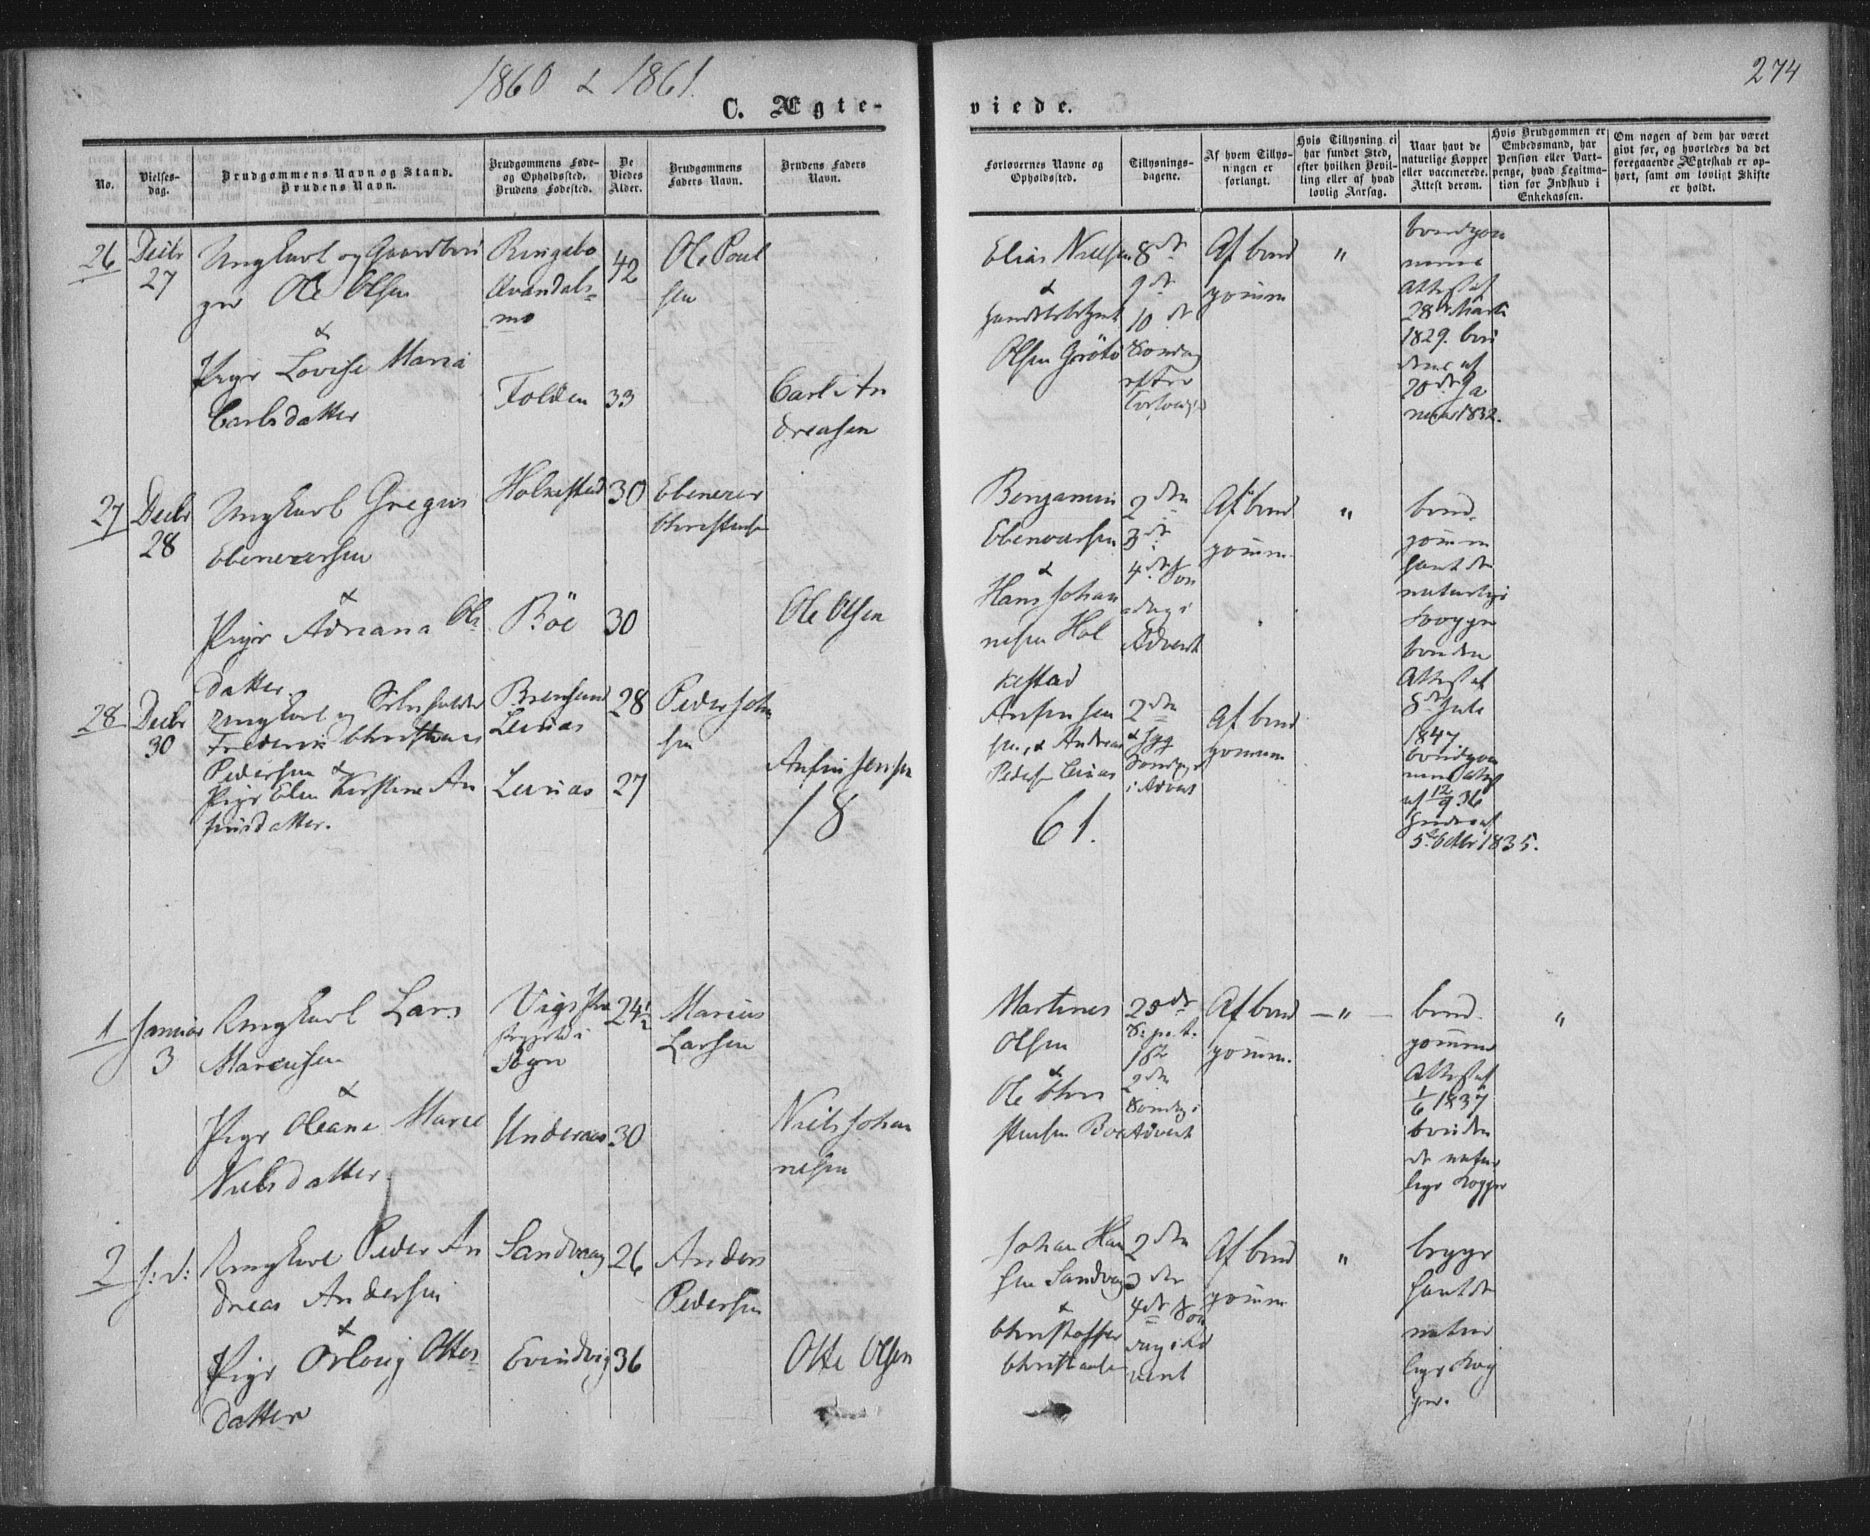 1860 & 1861.
274
C. Ægte-
viede.
No.
Vielses-
dag.
Brudgommens Navn og Stand.
Brudens Navn.
Brudgommens Føde-
og Opholdssted.
Brudens Fødested.
De
Viedes
Alder.
Brudgommens
Faders Navn.
Brudens Faders
Navn.
Forlovernes Navne og
Opholdssted.
Tillysnings-
dagene.
Af hvem Tillys-
ningen er
forlangt.
Hvis Tillysning ei
har fundet Sted,
efter hvilken Bevil-
ling eller af hvad
lovlig Aarsag.
Naar havt de
naturlige Kopper
eller vaccinerede.
Attest derom.
Hvis Brudgommen er
Embedsmand, har
Pension eller Vart-
penge, hvad Legitima-
tion for Indskud i
Enkekassen.
Om nogen af dem har været
givt før, og hvorledes da det
foregaaende Ægteskab er op-
hørt, samt om lovligt Skifte
er holdt.
26
Decbr
27
Ungkarl og
Ole Olsen
&
Pige Lovise Maria
Carlsdatter
Ringebo
Folden
42
33
Ole Poul
sen
Carl An
dreasen
Elias Nielsen
&
Olsen Grötö
8de
9de
10de
Söndag
efter
Af brud
gommen
"
brudgom
Attest af
28de Marti
1829. bru
dens af
20de Ja
nuar 1832.
27
Decbr
28
Ungkarl Gregus
Ebenezersen
&
Pige Adriana Ols
datter.
Holkestad
Böe
30
30
Ebenezer
Christensen
Ole Olsen
Benjamin
Ebenezersen
&
Hans Johan
nesen Hol
kestad
2den
3de
4de Sön
dag i
Advent
Af brud
gommen
"
brud
gommen
havt de
naturlige
Kopper
bruden
Attest af
8de Juli
1847
28
Decbr
30
Ungkarl og
Frederik Christian
Pedersen &
Pige Elen Kirstine An
finsdatter.
Brensund
Lernæs
Lernæs
28
27
Peder Johan
sen
Anfin Jensen
Anfin Jen
sen, & Andreas
Pedersen Lernæs
2den
Söndag
i Advent
Af brud
gommen
brudgom
mens Attest
af 12/9 36
5te Octbr 1835.
18
61.
1
Januar
3
Ungkarl Lars
Marcusen
&
Pige Oleane Marie
Nielsdatter
Sogn
Undernæs
24½
30
Marcus
Larsen
Niels Johan
nesen
Martines
Olsen
&
Ole Chri
stensen Böe
25de
S: p. t.
2den
Sönd. i
Advent
Af brud
gommen.
— " —
brud
gommens
Attest af
1/6 1837
bruden
de natur
lige Kopper
"
2
s: d:
Ungkarl Peder An
dreas Andersen
&
Pige Orloug Ottes
datter
Sandvaag
Evindvig
26
36
Anders
Pedersen
Otte Olsen
Johan Han
sen Sandvaag
&
Christoffer
2den
3die
4de Sön
dag i Ad
vent
Af brud
gommen
"
begge
havt de
natur
lige Kop
per.